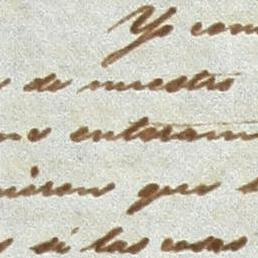 Yo com
de nuestro
enteram
que
si las cosas